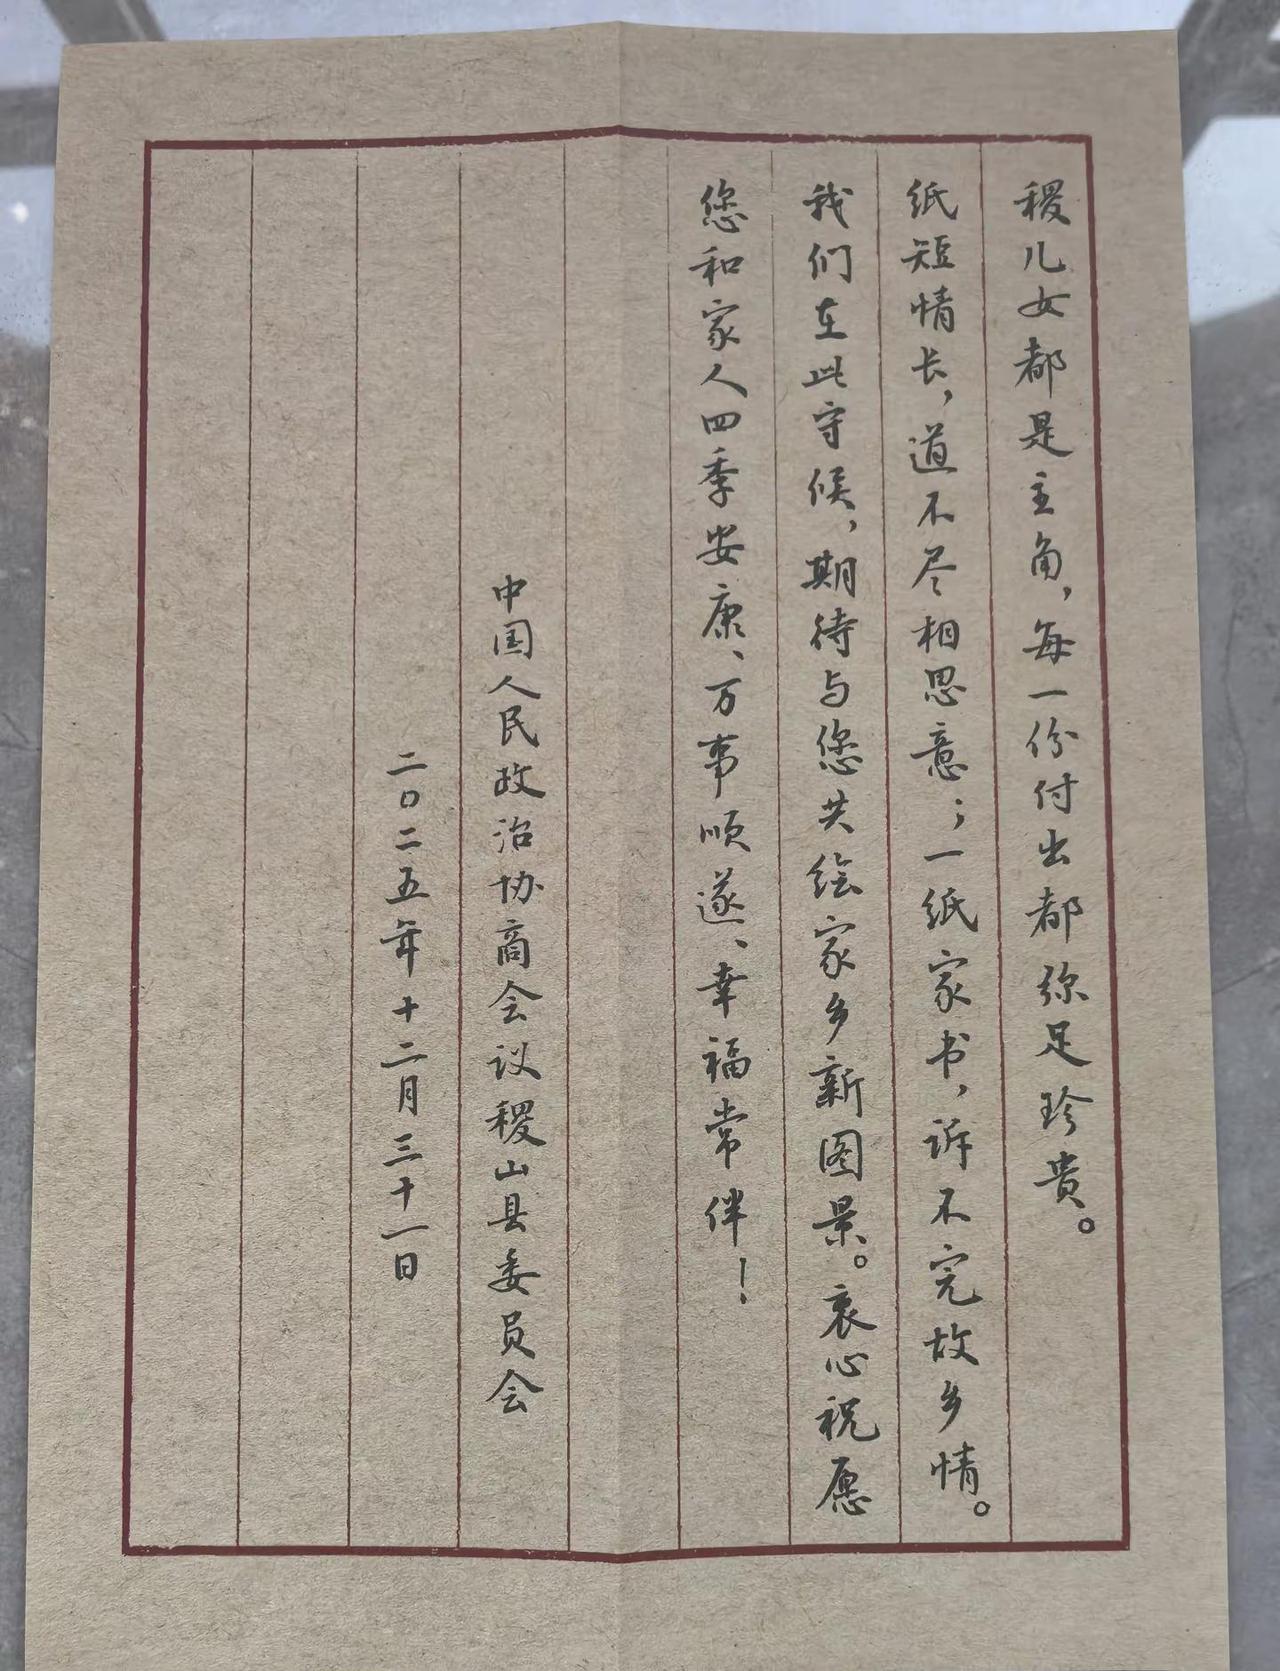 稷儿女都是主角，每一份付出都弥足珍贵。
纸短情长，道不尽相思意；一纸家书，诉不完故乡情。
我们在此守候，期待与您共绘家乡新图景。衷心祝愿
您和家人四季安康、万事顺遂、幸福常伴！
中国人民政治协商会议稷山县委员会
二〇二五年十二月三十一日